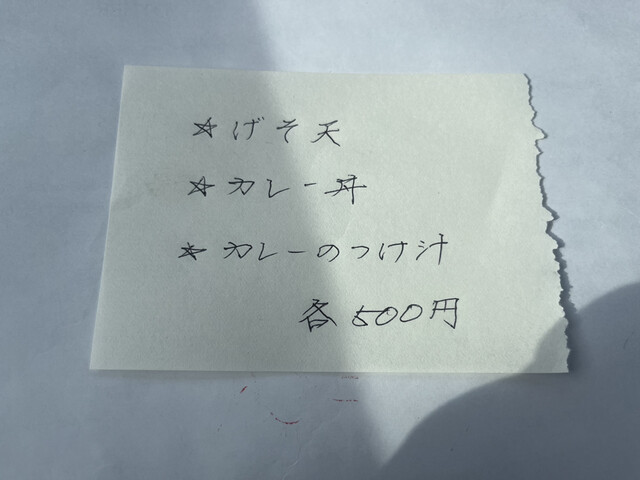 ☆げそ天
☆カレー丼
☆カレーのつけ汁
各500円